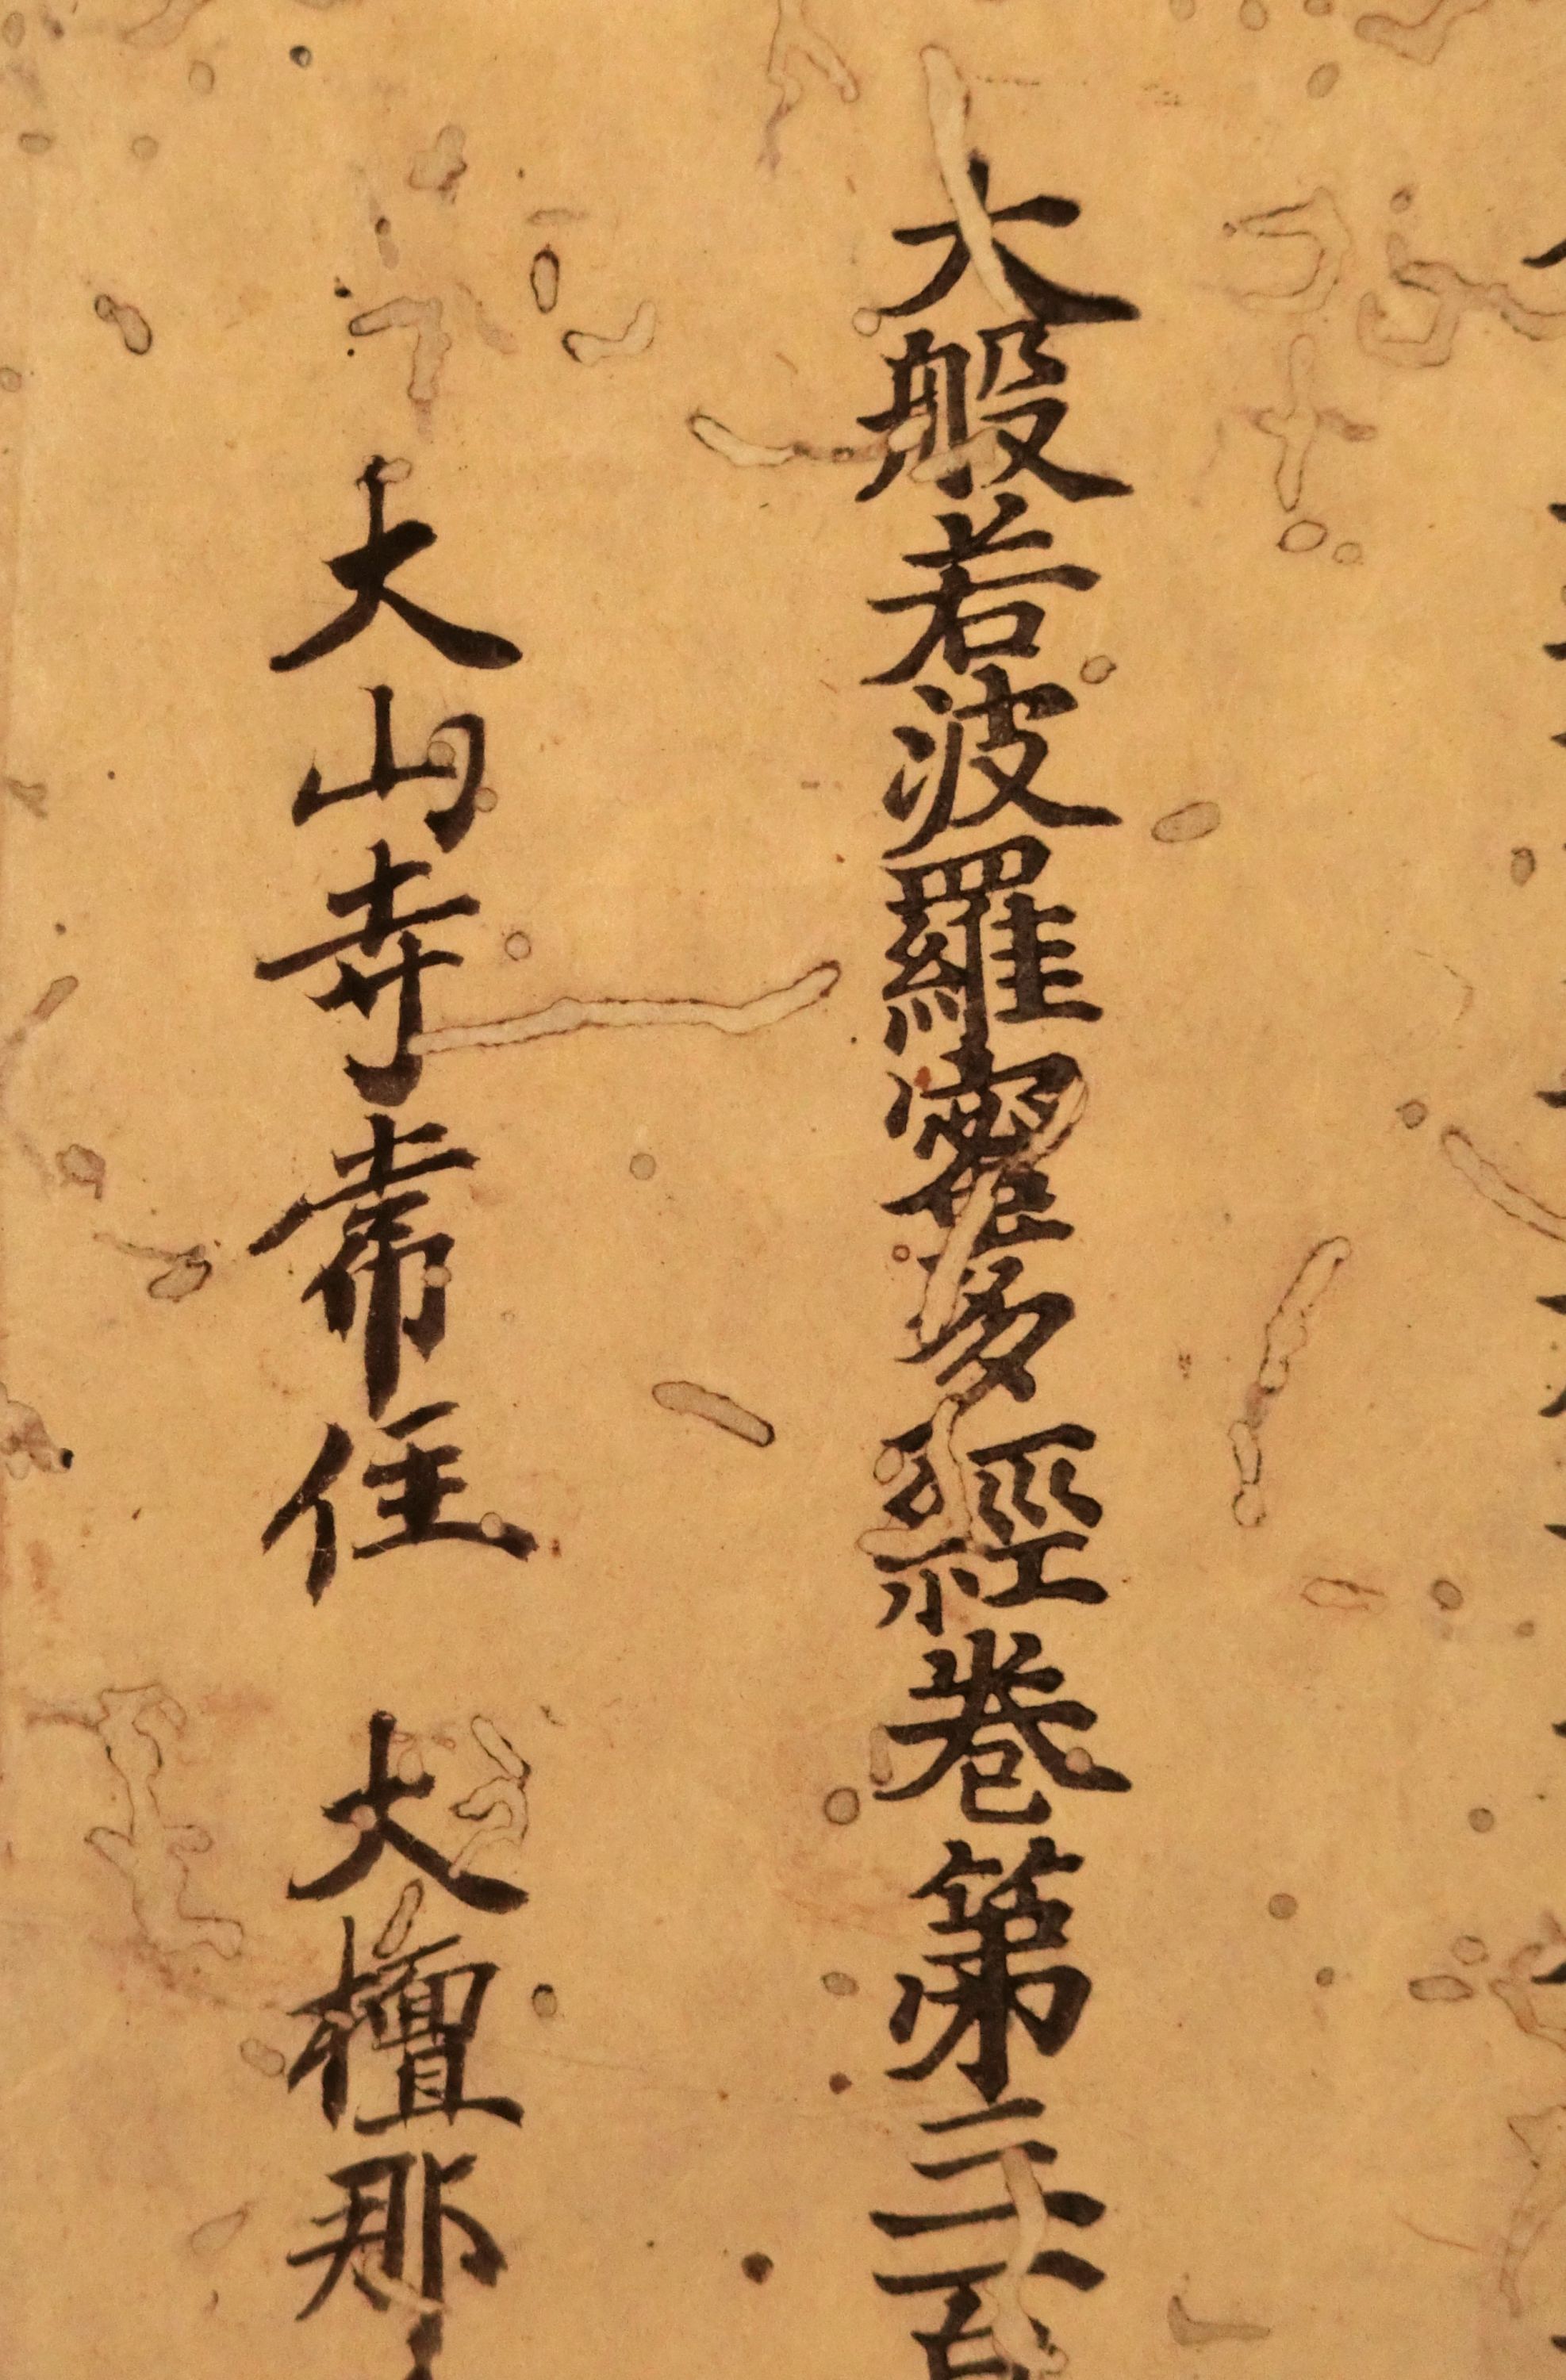 大般若波羅蜜多經卷第三百
大山寺常住 大檀那